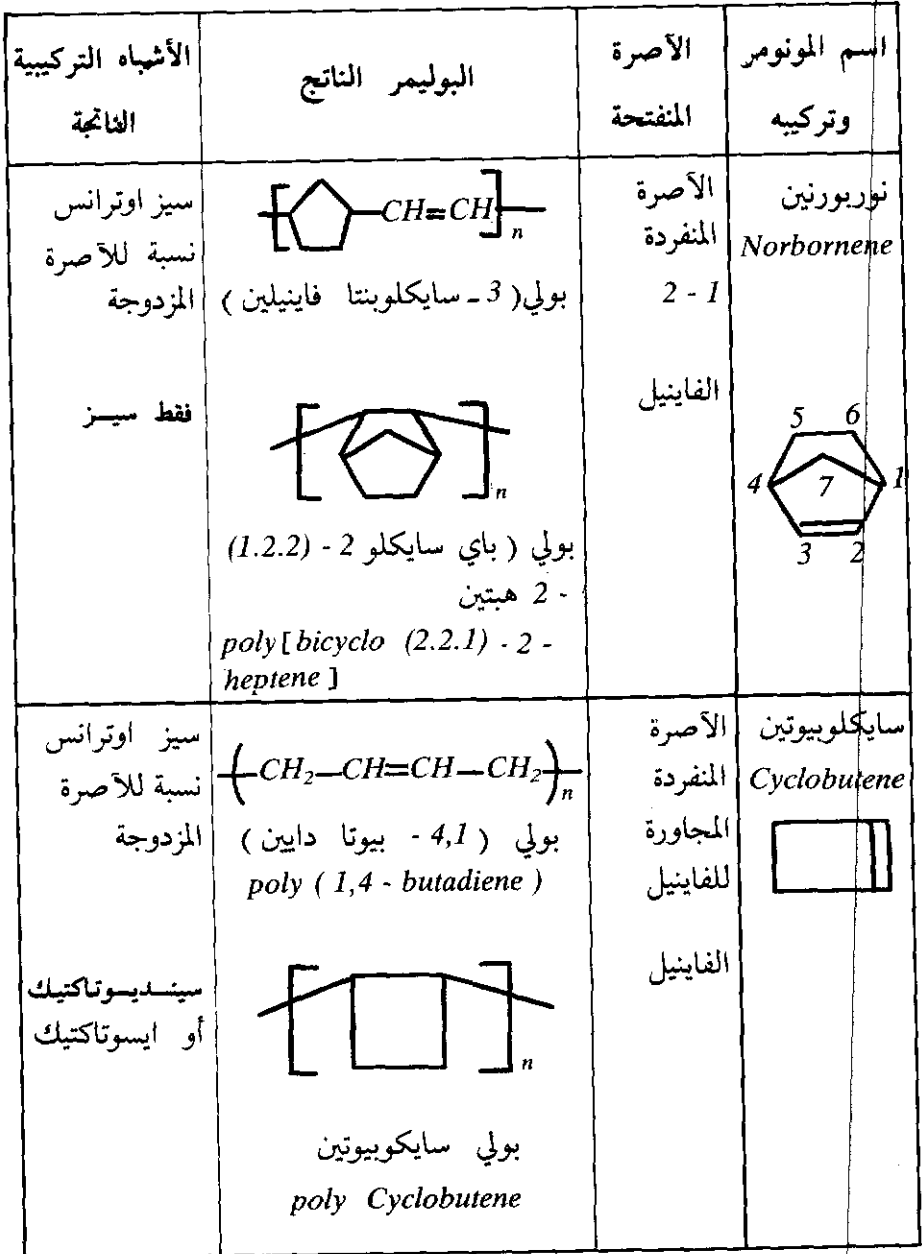 اسم المونومر وتركيبه
الآصرة المنفتحة
البوليمر الناتج
الأشباه التركيبية الناتجة
نوربورنين
Norbornene
5 6
4 7 1
3 2
الآصرة
المنفردة
2 - 1
CH=CH n
بولي( 3 ـ سايكلوبنتا فاينيلين )
سيز اوترانس
نسبة للآصرة
المزدوجة
الفاينيل
n
بولي ( باي سايكلو 2 - (1.2.2)
- 2 هبتين
poly [ bicyclo (2.2.1) - 2 -
heptene ]
فقط سيـــز
سايكلوبيوتين
Cyclobutene
الآصرة
المنفردة
المجاورة
للفاينيل
(CH₂—CH=CH—CH₂)n
بولي ( 4,1 - بيوتا دايين )
poly ( 1,4 - butadiene )
سيز اوترانس
نسبة للآصرة
المزدوجة
الفاينيل
n
بولي سايكوبيوتين
poly Cyclobutene
سينـــديـــوتاكتيك
أو ايسوتاكتيك